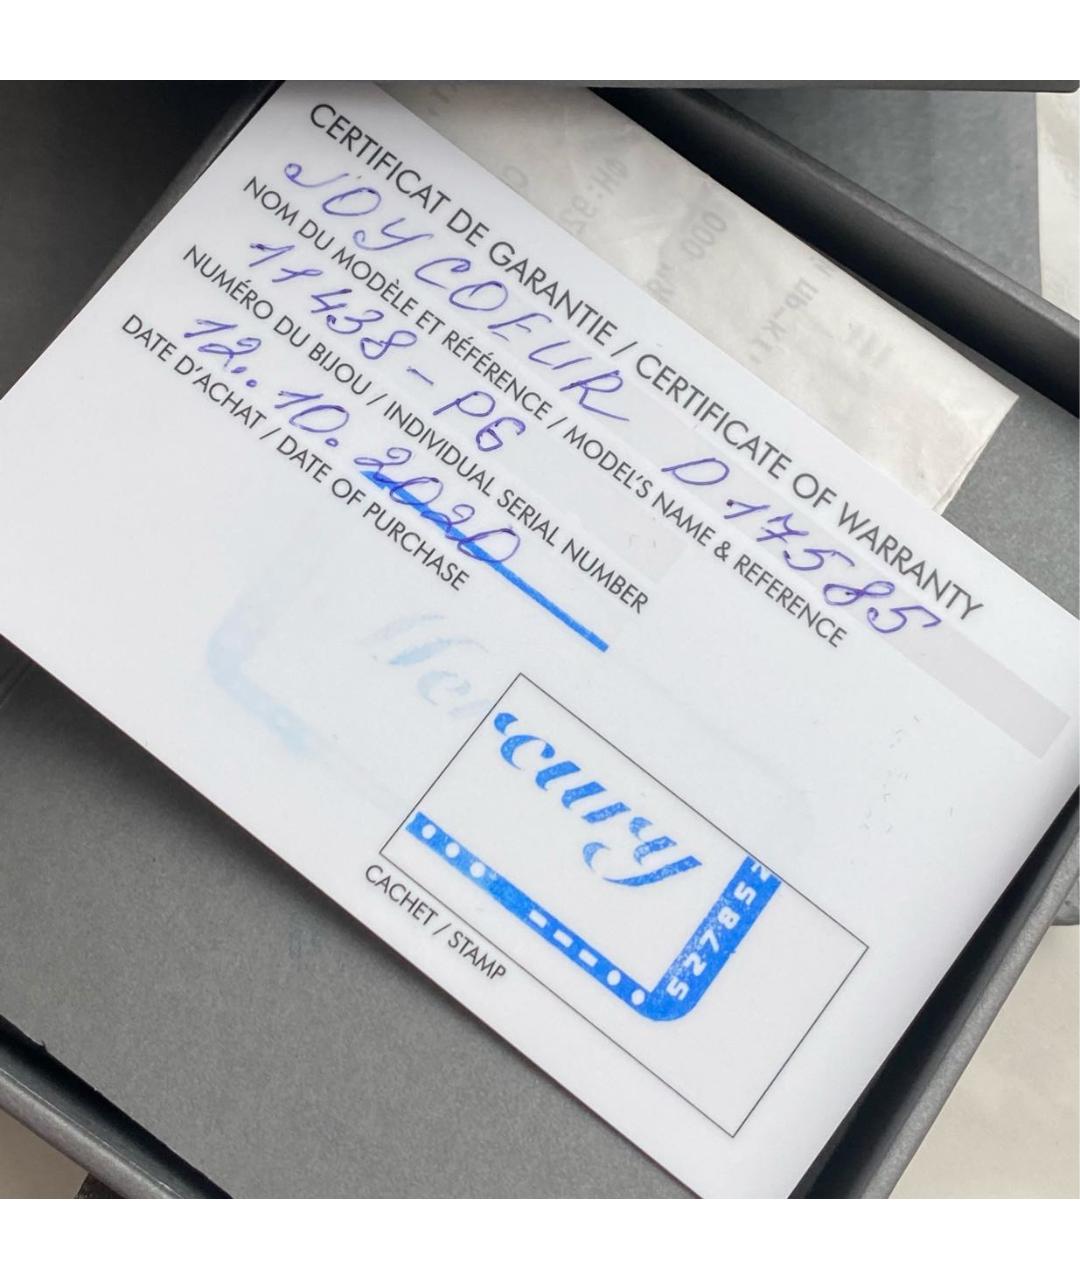 CERTIFICAT DE GARANTIE / CERTIFICATE OF WARRANTY
JOY COEUR D 17585
NOM DU MODÈLE ET RÉFÉRENCE / MODEL'S NAME & REFERENCE
11438 - PG
NUMÉRO DU BIJOU / INDIVIDUAL SERIAL NUMBER
12. 10. 2020
DATE D'ACHAT / DATE OF PURCHASE
cury
527852
CACHET / STAMP